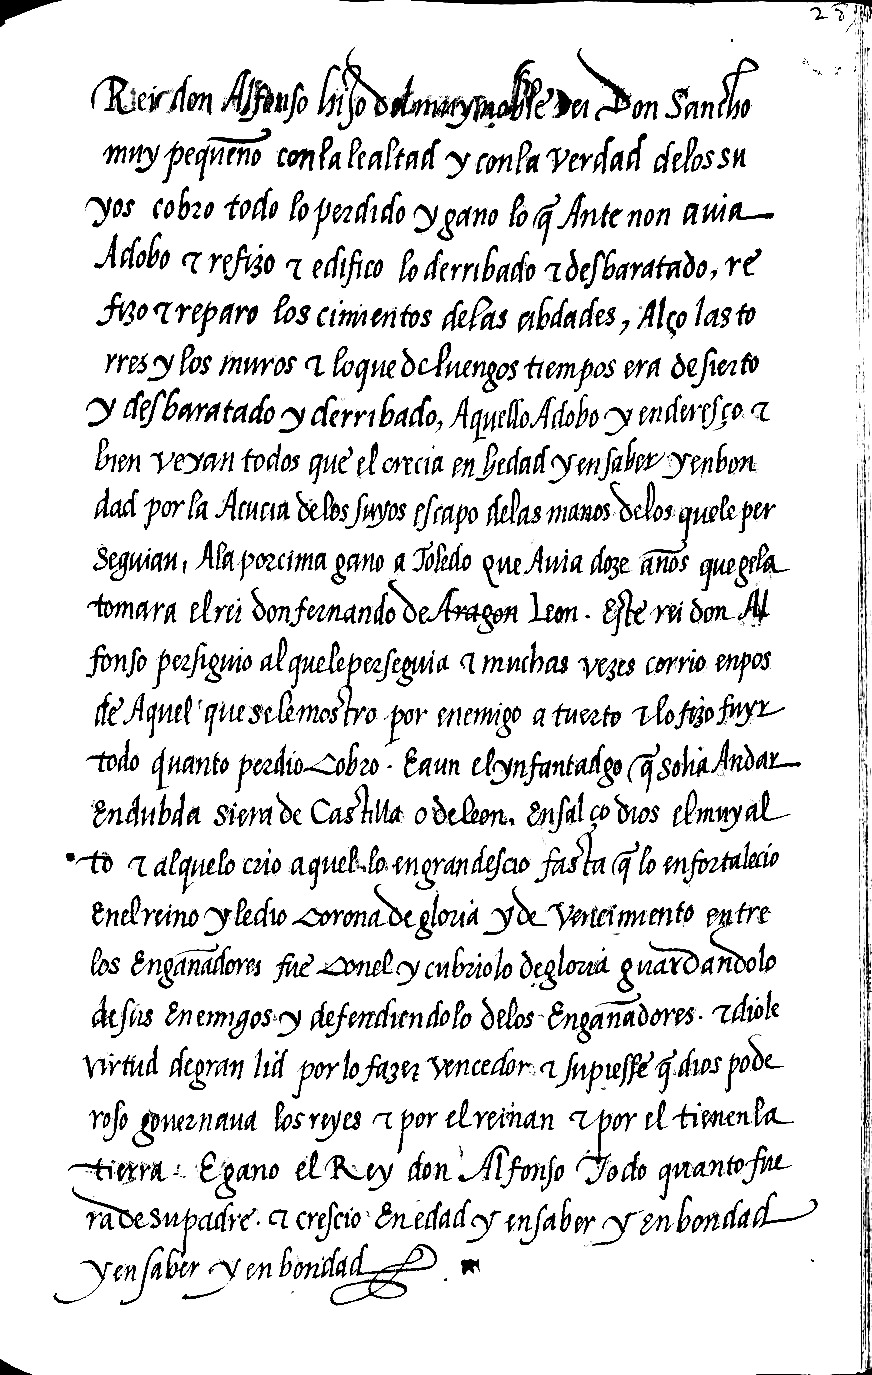 28
Rei don Alfonso hijo del muy noble Rei Don Sancho
muy pequeño con la lealtad y con la verdad delos su
yos cobro todo lo perdido y gano lo q̃ Ante non avia
Adobo ⁊ refizo ⁊ edifico lo derribado ⁊ desbaratado, re
fizo ⁊ reparo los cimientos delas cibdades, Alço las to
rres y los muros ⁊ lo que de luengos tiempos era desierto
y desbaratado y derribado, Aquello Adobo y enderesço ⁊
bien veyan todos que el crecia en hedad y en saber y en bon
dad por la Acucia delos suyos escapo delas manos delos que le per
seguian, Ala porcima gano a Toledo que Avia doze años que gela
tomara el rei don fernando de Aragon Leon. Este rei don Al
fonso persiguio al que le perseguia ⁊ muchas vezes corrio en pos
de Aquel que se le mostro por enemigo a tuerto ⁊ lo fizo fuyr
todo quanto perdio Cobro. E aun el ynfantadgo q̃ solia Andar
En dubda si era de Castilla o de leon. Ensalço dios el muy al
to ⁊ al que lo crio aquel lo engrandescio fasta q̃ lo enfortalecio
En el reino y le dio Corona de gloria y de vencimiento entre
los Engañadores fue Con el y cubriolo de gloria guardandolo
de sus Enemigos y defendiendolo delos Engañadores. ⁊ diole
virtud de gran lid por lo fazer vencedor ⁊ supiesse q̃ dios pode
roso governava los reyes ⁊ por el reinan ⁊ por el tienen la
tierra. E gano el Rey don Alfonso Todo quanto fue
ra de su padre. ⁊ crescio En edad y en saber y en bondad
y en saber y en bondad